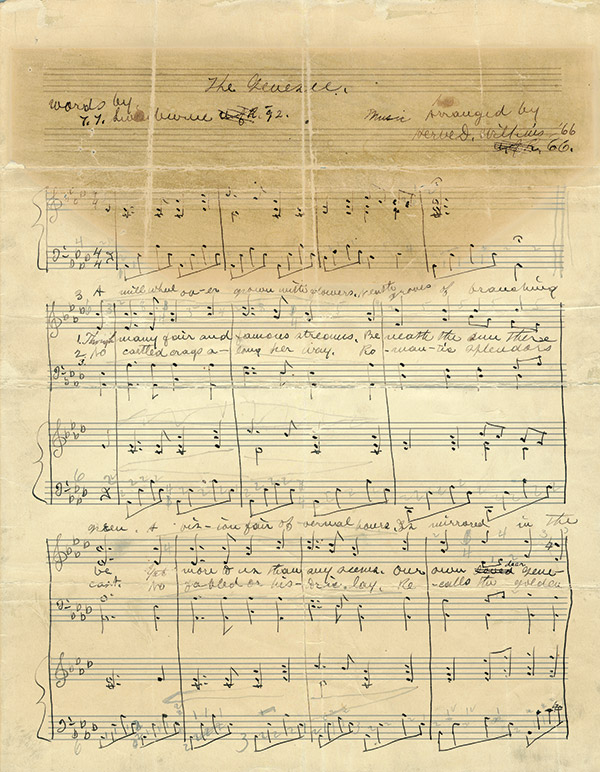 The Genesee.
words by
T. T. Swinburne '92.
Music Arranged by
Herve D. Wilkins '66
66.
3 A mill wheel o-er grown with flowers, neath groves of branching
1. Though many fair and famous streams, Be neath the sun there
2. No castled crags a-long her way. Ro-man-tic splendors
green. A vis-ion fair of vernal hours, Is mirrored in the
be Yet more to us than any seems Our own loved her Gene-
cast. No fabled or his-toric lay, Re-calls the golden